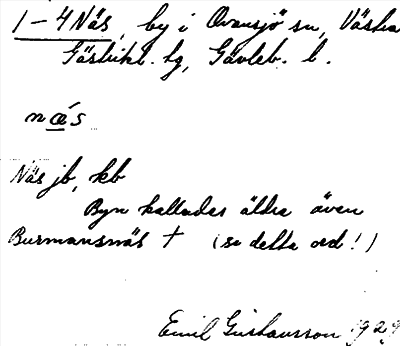 1–4 Näs, by i Ovansjö sn, Västra
Gästrikl. hg, Gävleb. l.
næ´s
Näs jb, kb
Byn kallades äldre även
Burmansnäs † (se detta ord!)
Emil Gustavsson 1929